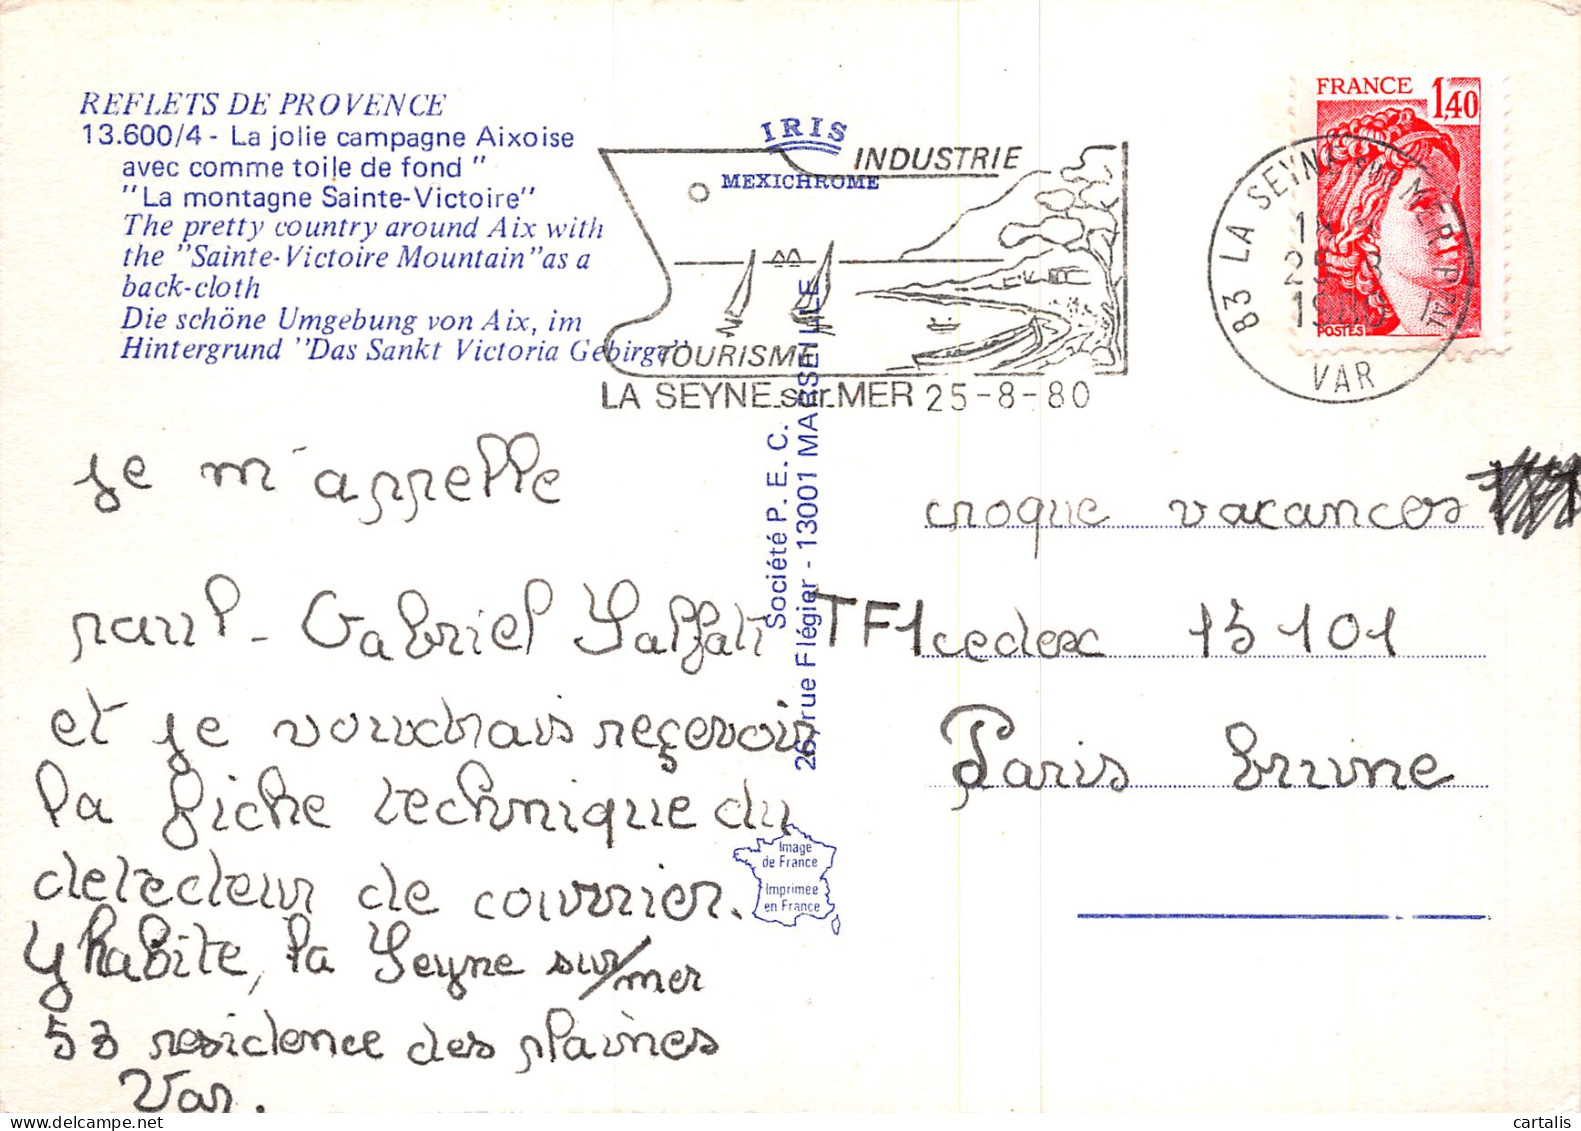 REFLETS DE PROVENCE
13.600/4 - La jolie campagne Aixoise
avec comme toile de fond "
"La montagne Sainte-Victoire"
The pretty country around Aix with
the "Sainte-Victoire Mountain" as a
back-cloth
Die schöne Umgebung von Aix, im
Hintergrund "Das Sankt Victoria Gebirge"
IRIS
MEXICHROME
INDUSTRIE
TOURISME
LA SEYNE sur MER 25-8-80
FRANCE 1,40
POSTES
83 LA SEYNE sur MER Ppal
25-8
1980
VAR
je m'appelle
paul-Gabriel Salfati
et je voudrais reçevoir
la fiche technique du
detecteur de courrier.
y habite, la Seyne sur/mer
53 residence des plaines
Var.
Société P. E. C.
26, rue Flégier - 13001 MARSEILLE
Image
de France
Imprimee
en France
croque vacances
TF1 cedex 15 101
Paris brune
cartalis